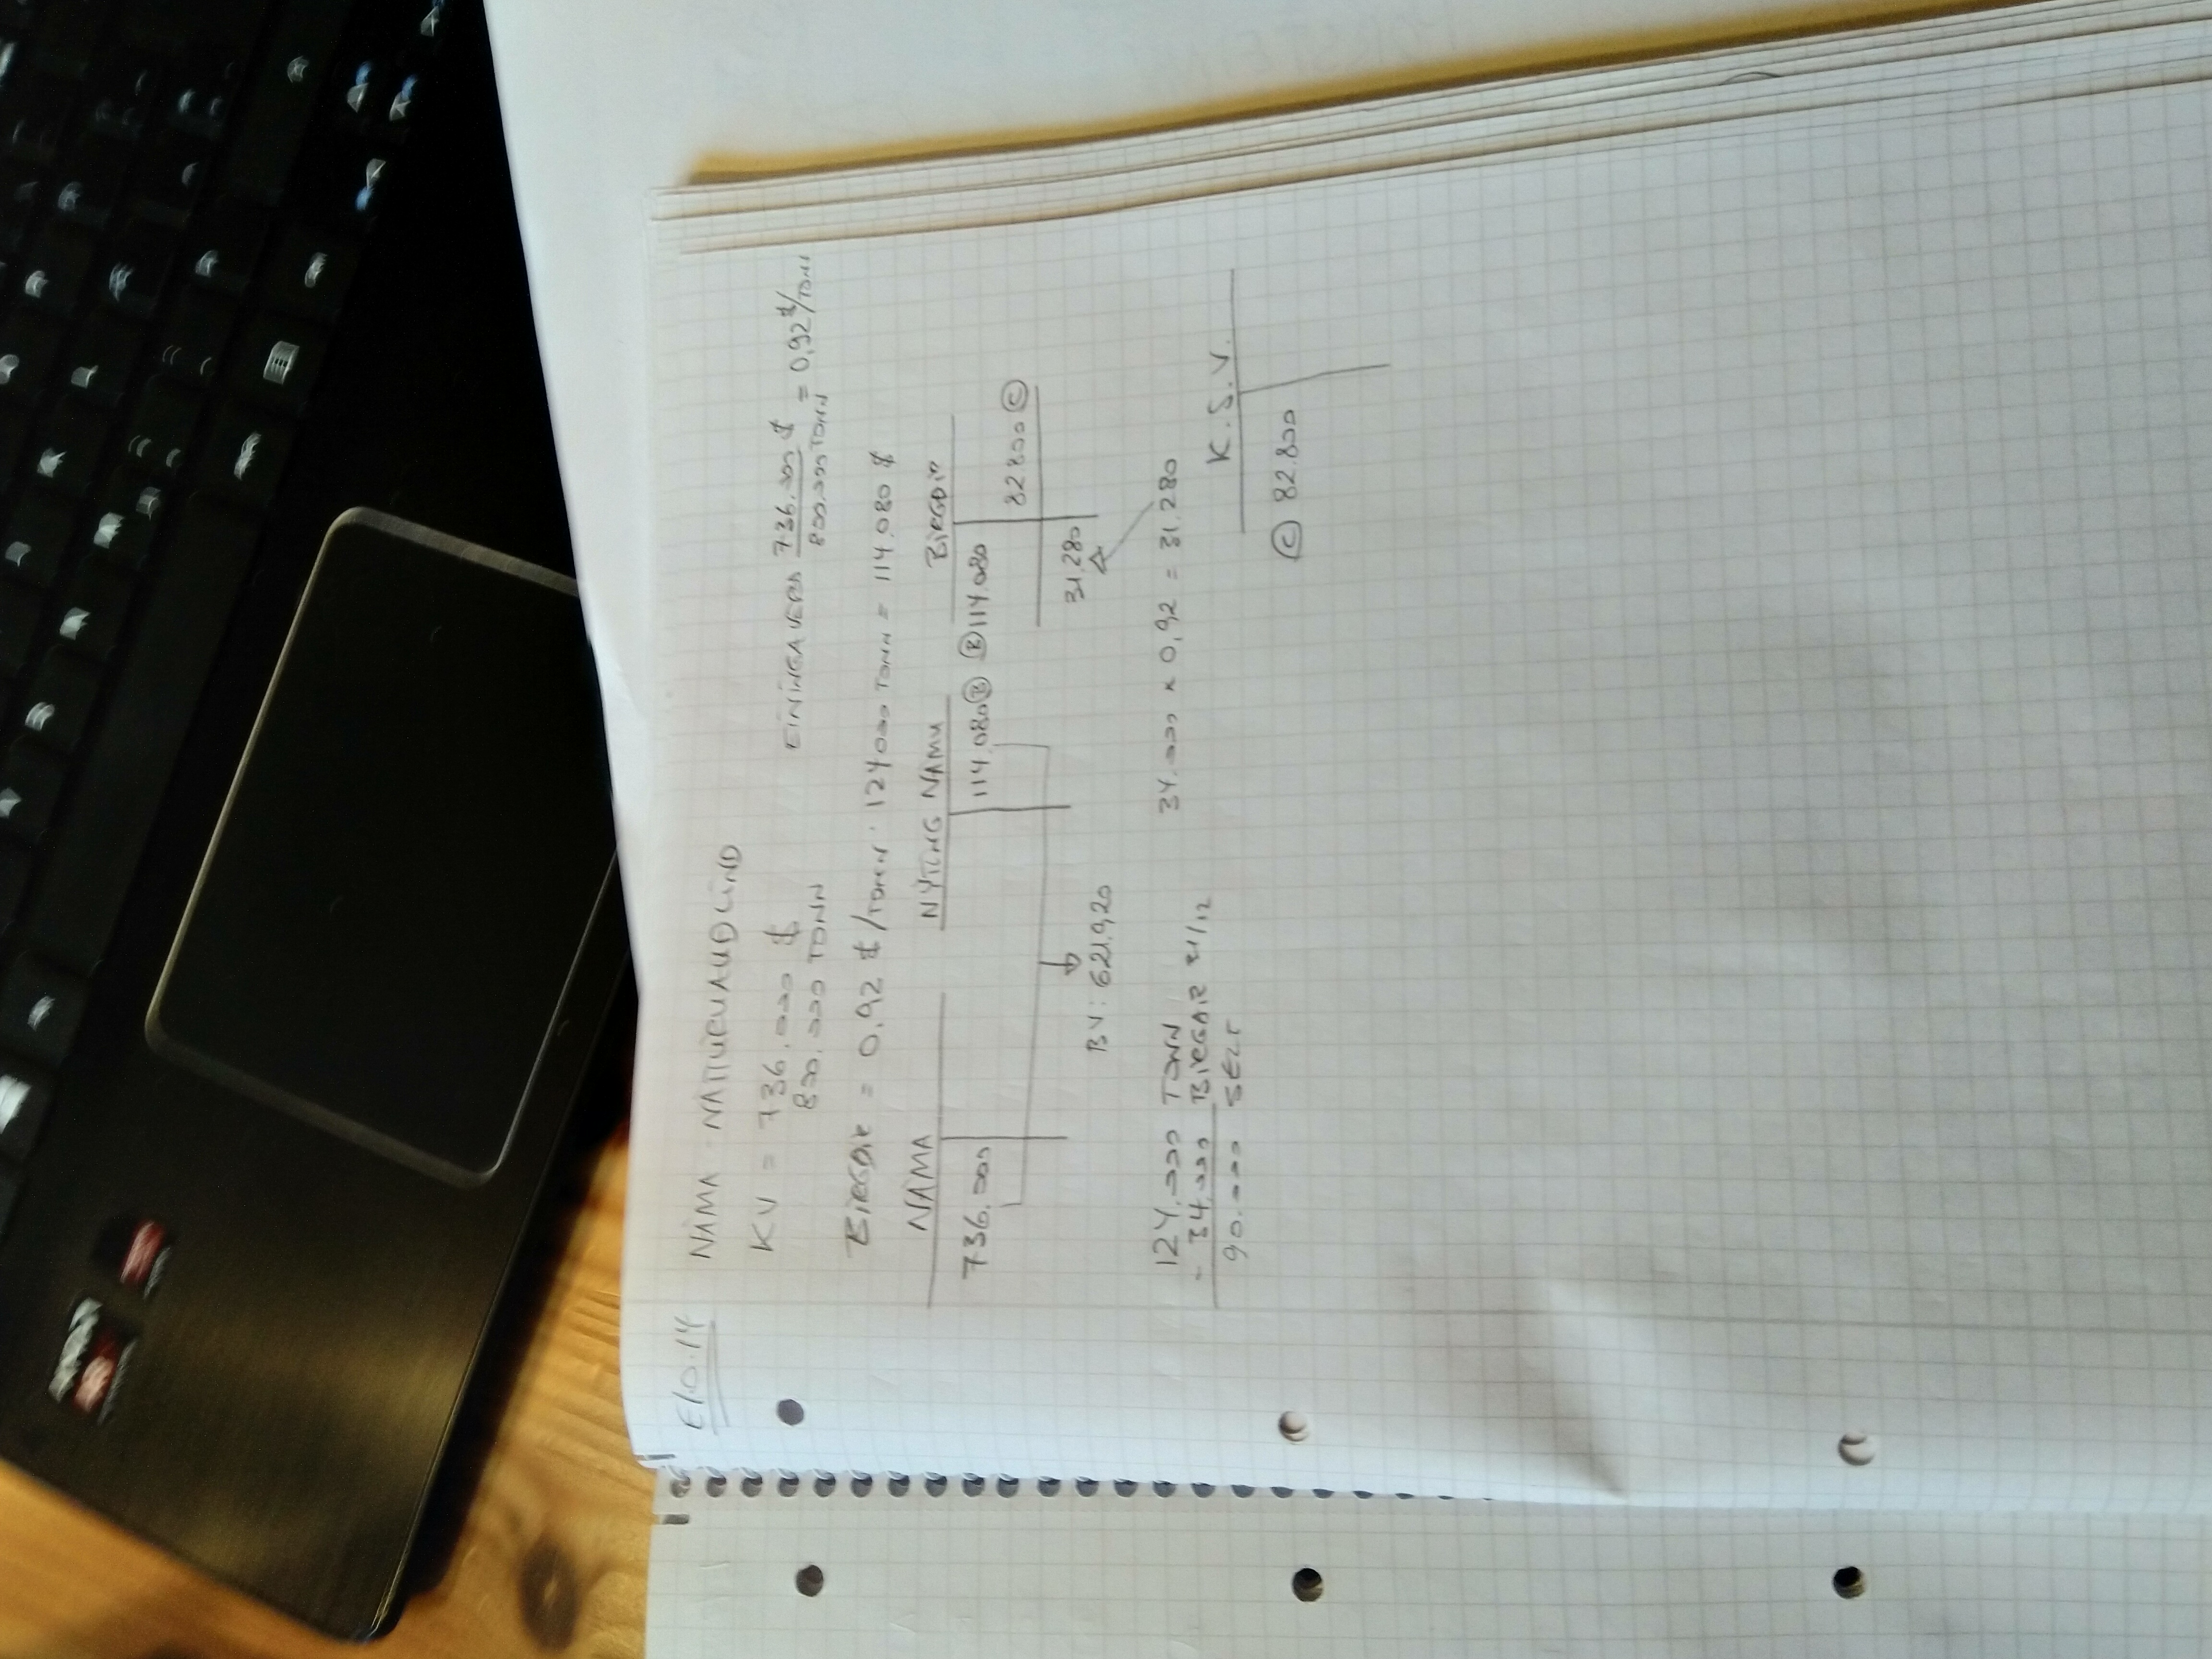 E10.14 NÁMA NÁTTÚRUAUÐLIND
KV = 736.000 $
800.000 TONN
EININGAVERÐ 736.000 $ / 800.000 TONN = 0,92 $/TONN
BIRGÐIR = 0,92 $/TONN · 124000 TONN = 114.080 $
NÁMA
736.000
NÝTING NÁMU
114.080 Ⓑ
BIRGÐIR
Ⓑ 114.080
82.800 Ⓒ
31.280
BV: 621.920
124.000 TONN
- 34.000 BIRGÐIR 31/12
90.000 SELT
34.000 × 0,92 = 31.280
K.S.V.
Ⓒ 82.800